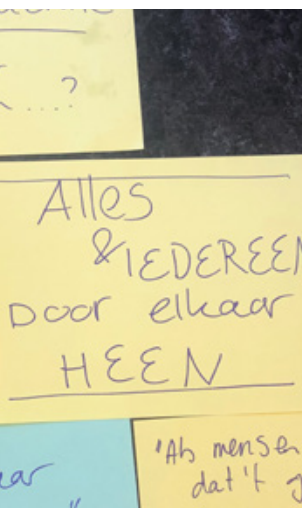 ....?
Alles
& IEDEREEN
Door elkaar
HEEN
"Als mensen
dat 't